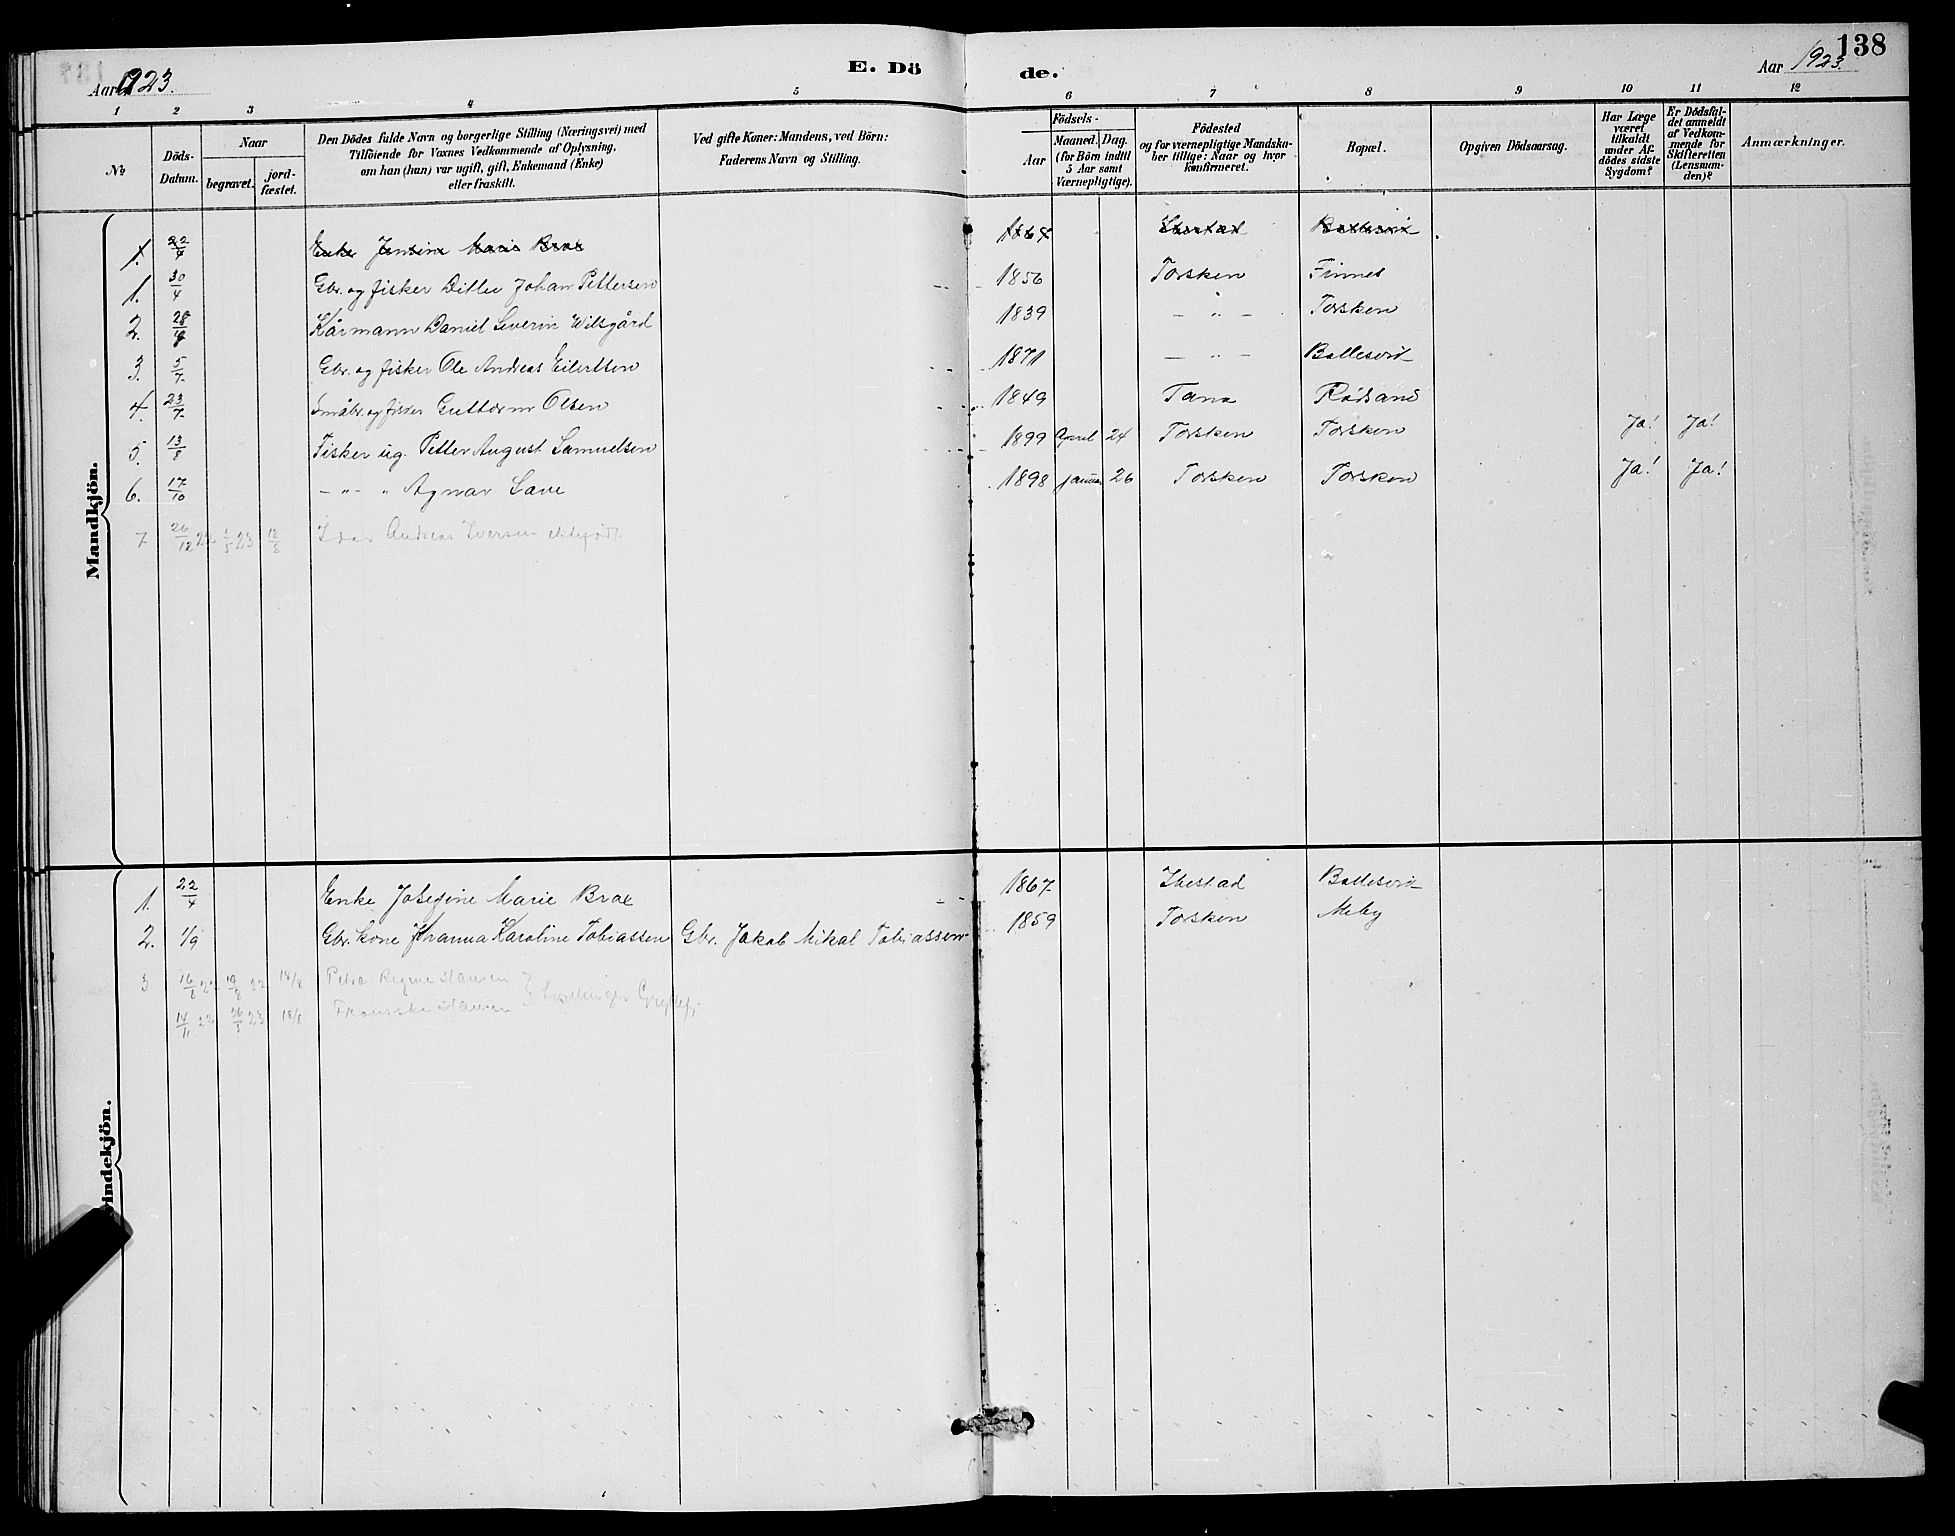 138
Aar 1923.
E. Dö
de.
Aar 1923.
1 2 3 4 5 6 7 8 9 10 11 12
No
Döds-Datum.
Naar
begravet.
jord-fæstet.
Den Dödes fulde Navn og borgerlige Stilling (Næringsvei) med
Tilföiende for Voxnes Vedkommende af Oplysning,
om han (hun) var ugift, gift, Enkemand (Enke)
eller fraskilt.
Ved gifte Koner: Mandens, ved Börn:
Faderens Navn og Stilling.
Födsels-
Aar
Maaned. Dag.
(for Börn indtil
5 Aar samt
Værnepligtige).
Födested
og for værnepligtige Mandska-
ber tillige: Naar og hvor
konfirmeret.
Bopæl.
Opgiven Dödsaarsag.
Har Læge
været
tilkaldt
under Af-
dödes sidste
Sygdom?
Er Dödsfal-
det anmeldt
af Vedkom-
mende for
Skifteretten
(Lensman-
den)?
Anmærkninger.
Mandkjön.
1. 22/4 Enke Marie Brox Ibestad Ballesvik
1. 30/4 Gbr. og fisker Ditlev Johan Pettersen 1856 Torsken Finnes
2. 28 Kårmann Daniel Severin Wilsgård 1839 — " — Torsken
3. 5/7 Gbr. og fisker Ole Andreas Eilertsen 1871 — " — Ballesvik
4. 23/7 Småbr. og fisker Guttorm Olsen 1849 Tana Rödsand
5. 13/8 Fisker ug. Petter August Samuelsen 1899 April 24 Torsken Torsken Ja! Ja!
6. 17/10 — " — " Agnar Lave 1898 januar 26 Torsken Torsken Ja! Ja!
7 26/12 22 23 18/8 Andreas Iversen
Kvindekjön.
1. 22/4 Enke Josefine Marie Brox 1867 Ibestad Ballesvik
2. 1/9 Gbr. kone Johanna Karoline Tobiassen Gbr. Jakob Mikal Tobiassen 1859 Torsken Meby
3 16/8 22 19/8 22 18/8 Petra Regine Hansen
14/11 22 26/5 23 18/8 Hansen